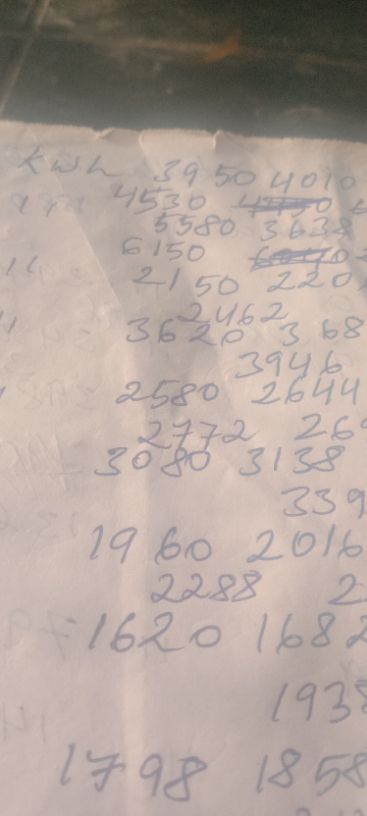 KWh 3950 4010
4530
5580 3638
6150
2150 220
2462
3620 368
3946
2580 2644
2772 26
3080 3138
339
1960 2016
2288 2
1620 1682
1938
1798 1858